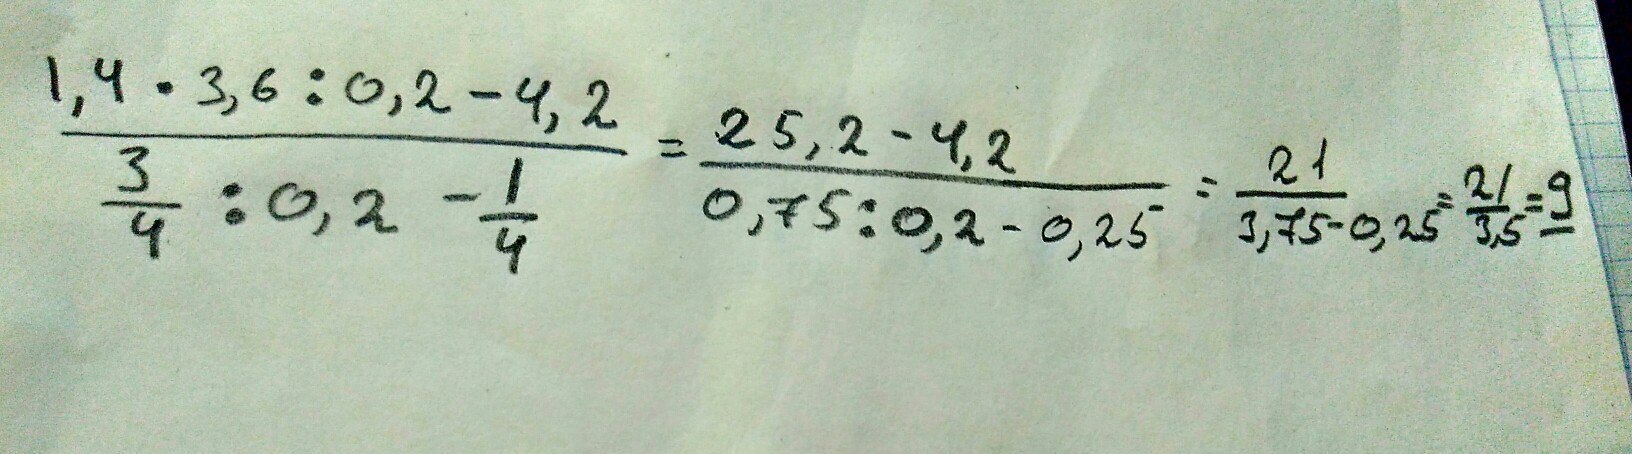 1,4 · 3,6 : 0,2 - 4,2
3/4 : 0,2 - 1/4
=
25,2 - 4,2
0,75 : 0,2 - 0,25
=
21
3,75 - 0,25
=
21
3,5
= 9